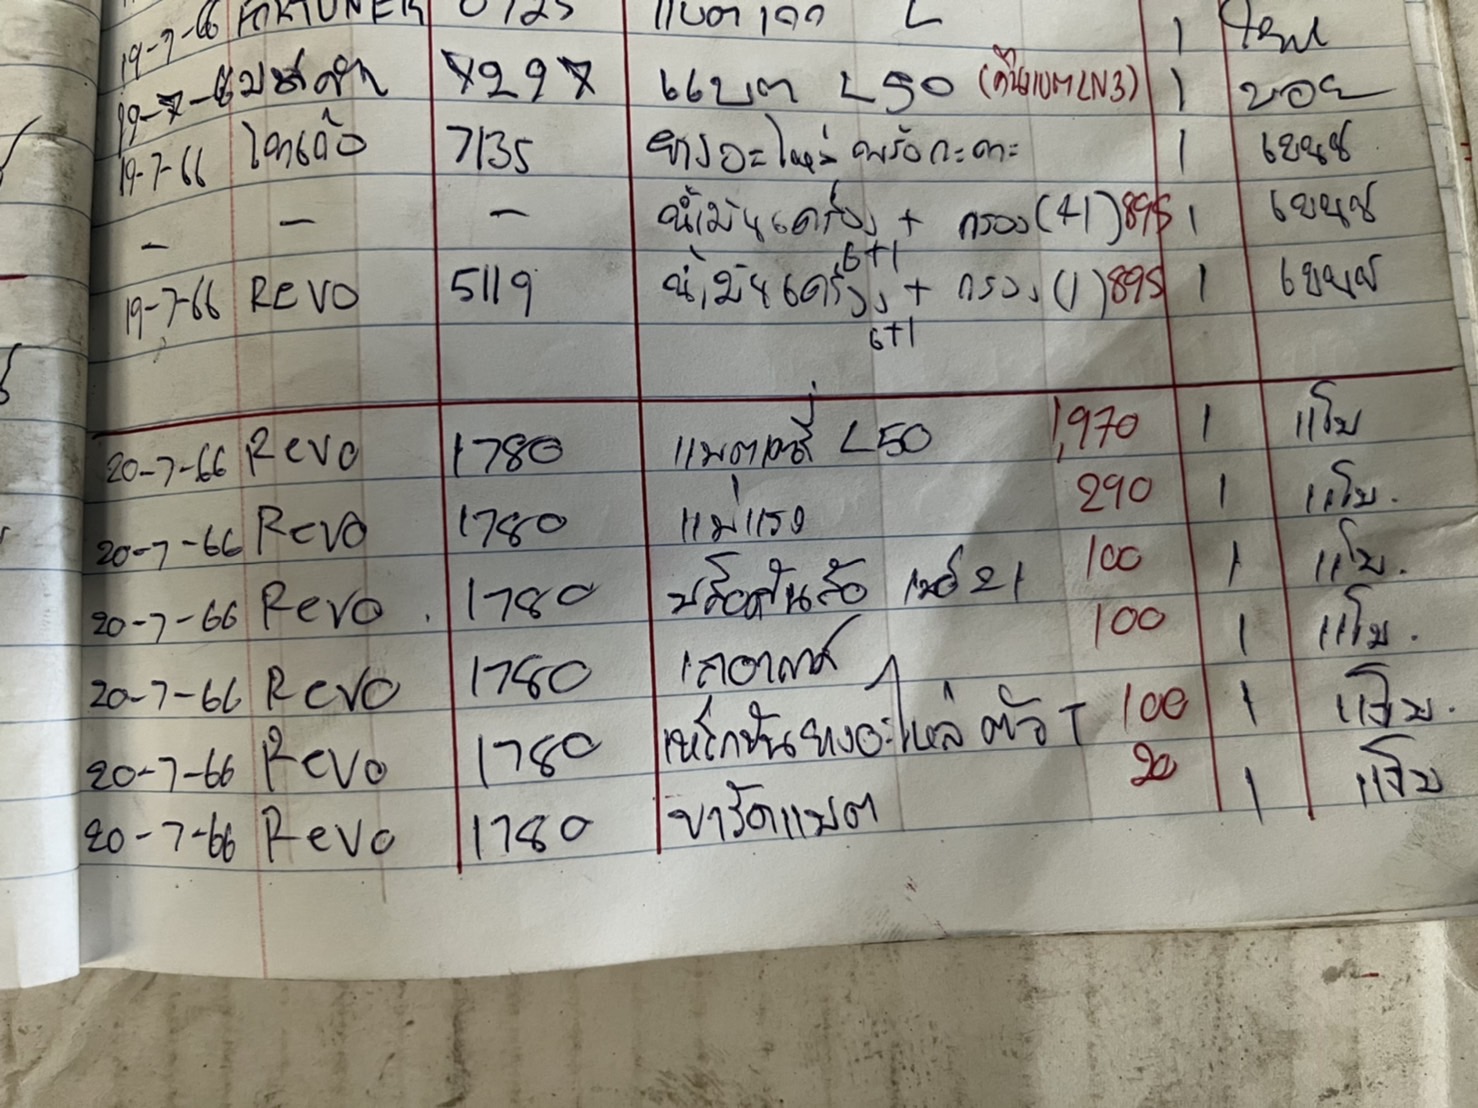 19-7-66 FORTUNER 0725 แบตเตอ L 1
19-7-6 7297 แบต L50 (คืนแบตLN3) 1 บอย
19-7-66 7135 ยางอะไหล่ พร้อกะทะ 1 เขนย์
- - - น้ำมันเครื่อง 6+1 + กรอง (41) 895 1 เขนย์
19-7-66 REVO 5119 น้ำมันเครื่อง 6+1 + กรอง (1) 895 1 เขนย์
20-7-66 Revo 1780 แบตเตอรี่ L50 1,970 1 แโบ
20-7-66 Revo 1780 แม่แรง 290 1 แโบ.
20-7-66 Revo . 1780 บล็อคขันล้อ เบอร์ 21 100 1 แโบ.
20-7-66 Revo 1780 100 1 แโบ.
20-7-66 Revo 1780 เหล็กขันยางอะไหล่ ตัว T 100 1 แโบ.
20-7-66 Revo 1780 ขารัดแบต 20 1 แโบ